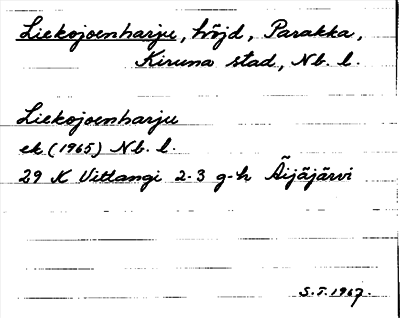 Liekojoenharju, höjd, Parakka,
Kiruna stad, Nb. l.
Liekojoenharju
ek (1965) Nb. l.
29 K Vittangi 2-3 g-h Äijäjärvi
S.T. 1967.